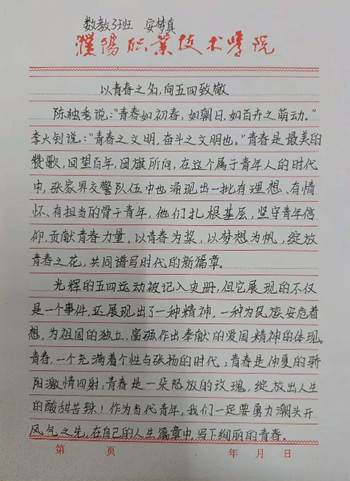 数教3班 安梦真
濮阳职业技术学院
以青春之名,向五四致敬
陈独秀说:“青春如初春,如朝日,如百卉之萌动。”
李大钊说:“青春之文明,奋斗之文明也。”青春是最美的
赞歌,回望百年,团旗所向,在这个属于青年人的时代
中,张家界交警队伍中也涌现出一批有理想、有情
怀、有担当的骨干青年,他们扎根基层,坚守青年信
仰,贡献青春力量,以青春为桨,以梦想为帆,绽放
青春之花,共同谱写时代的新篇章。
光辉的五四运动被记入史册,但它展现的不仅
是一个事件,还展现出了一种精神,一种为民族安危着
想,为祖国的独立、富强作出奉献的爱国精神的体现。
青春,一个充满着个性与张扬的时代;青春是仲夏的骄
阳激情四射,青春是一朵怒放的玫瑰,绽放出人生
的酸甜苦辣!作为当代青年,我们一定要勇力潮头开
风气之先,在自己的人生篇章中,写下绚丽的青春。
第 页 年 月 日